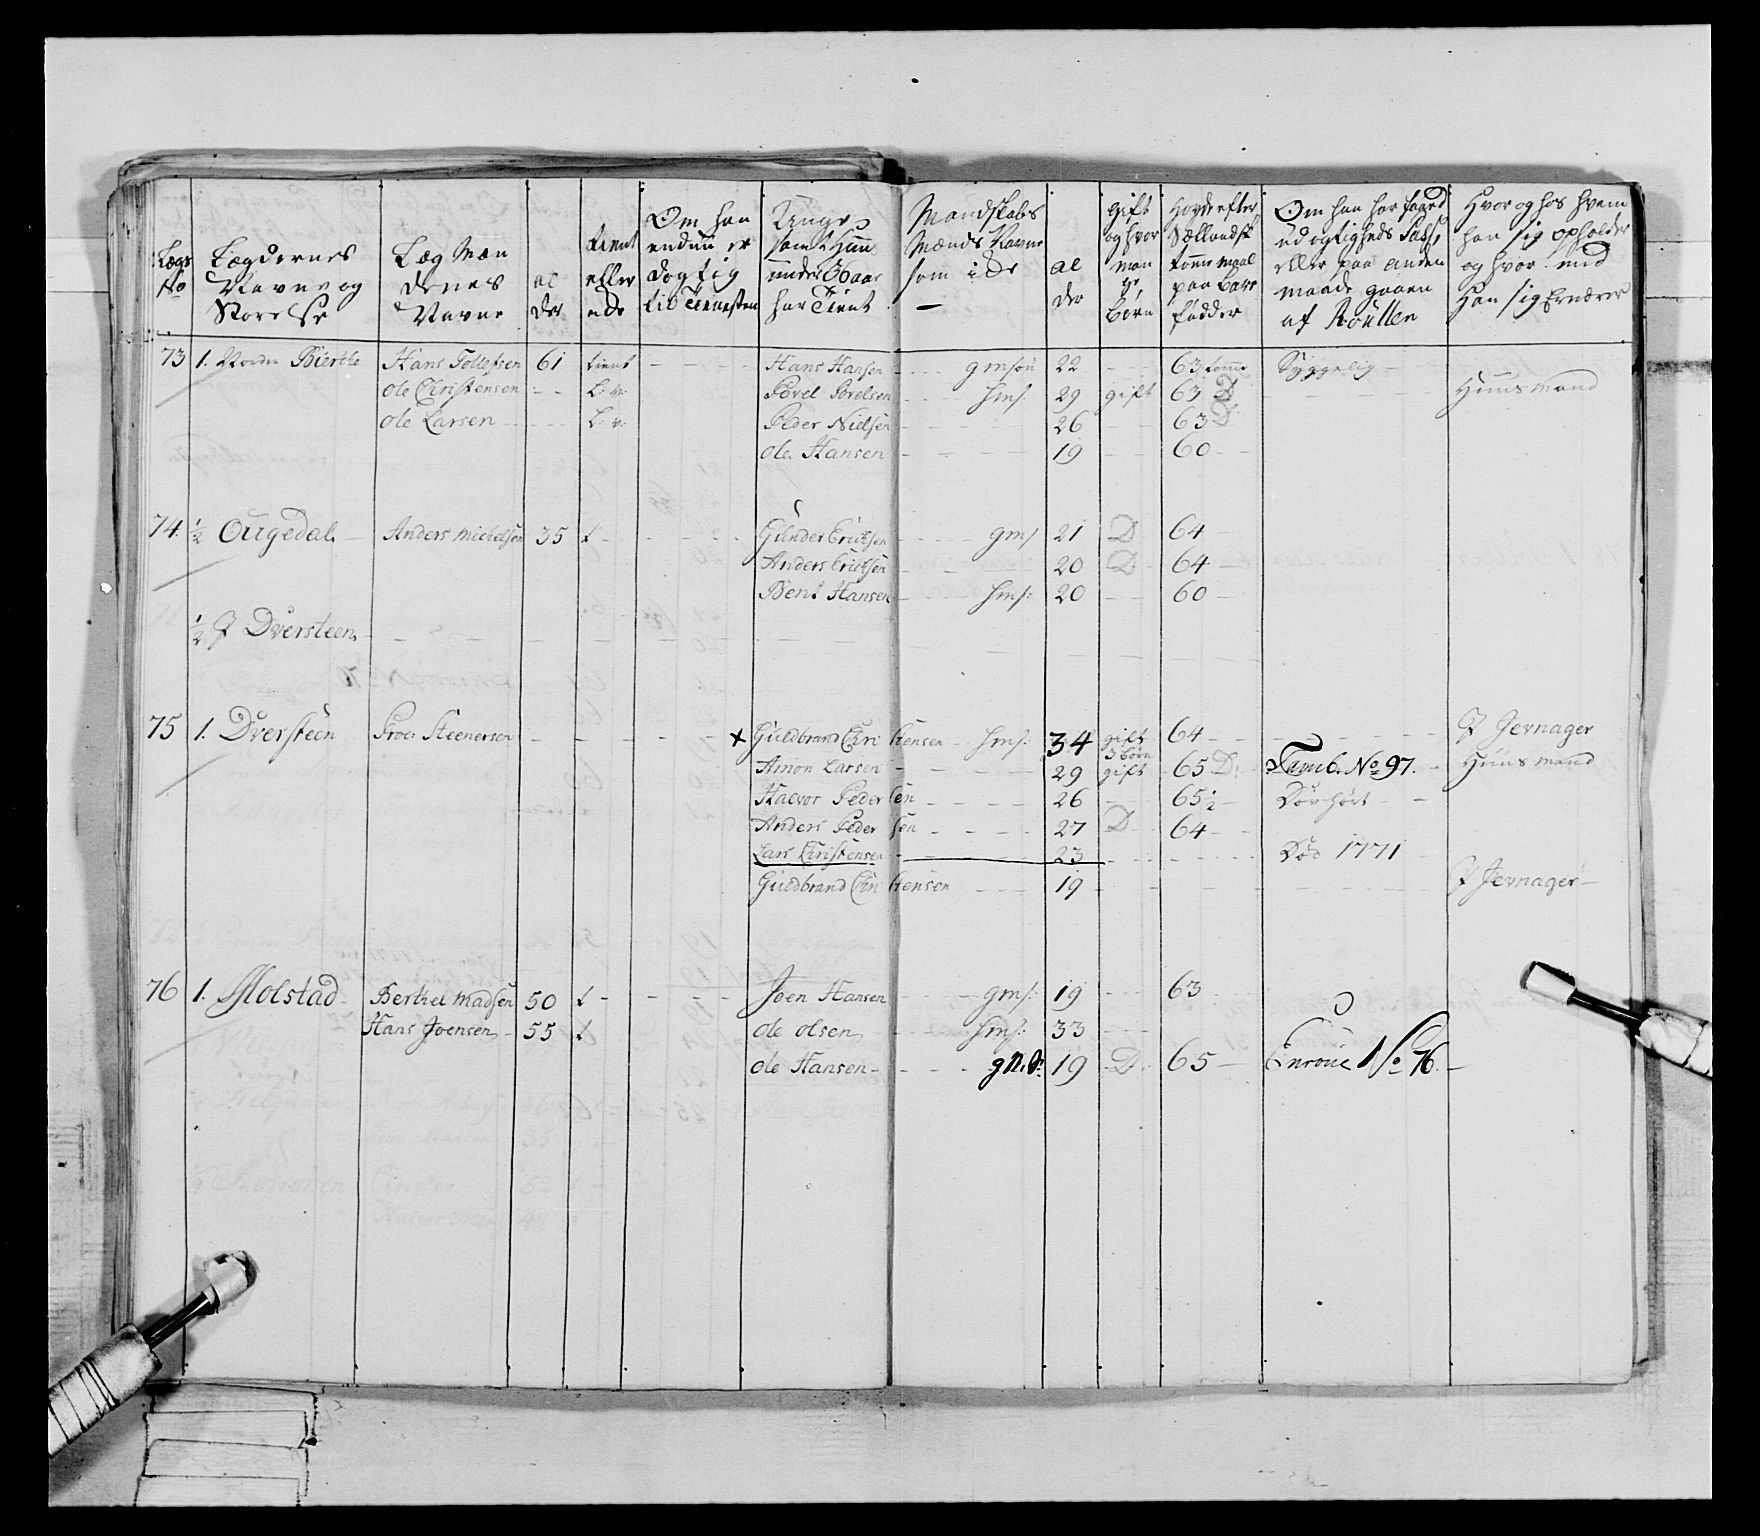 Lægs No
Lægdernes Navne og Størrelse
Læg Mændenes Navne
alder
tient eller ede
Om han endnu er dygtig til Tienesten
Unge Mandskabs Mænds Navne
som i de
under 30 aar har tient
alder
gift og hvor mange Børn
Om han har faaed udygtigheds Pass, eller paa anden maade gaaen af Roullen
Hvor og hos hvem han sig opholder og hvor med Han sig Ernærer
73 1. Nordre Bierche Hans Tollefsen 61 tient - - - - Hans Hansen - - - gmsøn 22 - - 63 tomme Syggelig -
Ole Christensen - - L: v: Povel Povelsen - - - hms: 29 gift 63 D - - - - Huusmand
Ole Larsen - - - L: v: Peder Nielsen - - - 26 - - 63 D
Ole Hansen - - - 19 - - 60 - -
74. 1/2 Ougedal - Anders Michelsen 35 t - - - - Gunder Erichsen - - - gms 21 D 64
Anders Erichsen - - 20 D 64 -
Bent Hansen - - hms: 20 - - 60 -
1/2 P Dversteen - - - - - -
75 1. Dversteen Proc: Steenersen - - - - x Guldbrand Christensen - - hms: 34 gift 3 børn 64 - - - - P Jevnager
Amon Larsen - - - 29 gift 65 D: Tamb. No 97. - Huusmand
Halvor Pedersen - - - 26 - - 65 1/2 - Døvhørt - -
Anders Pedersen - - - 27 D 64 -
Lars Christensen - - - 23 - - - - Død 1771
Guldbrand Christensen - - - 19 - - - - - P Jevnager -
76 1. Molstad - Berthel Madsen 50 t - - - - Joen Hansen - - gms: 19 - - 63
Hans Joensen - 55 t Ole Olsen - - hms: 33 - -
Ole Hansen - - - gn.S: 19 D. 65 - Enroue No 76. -